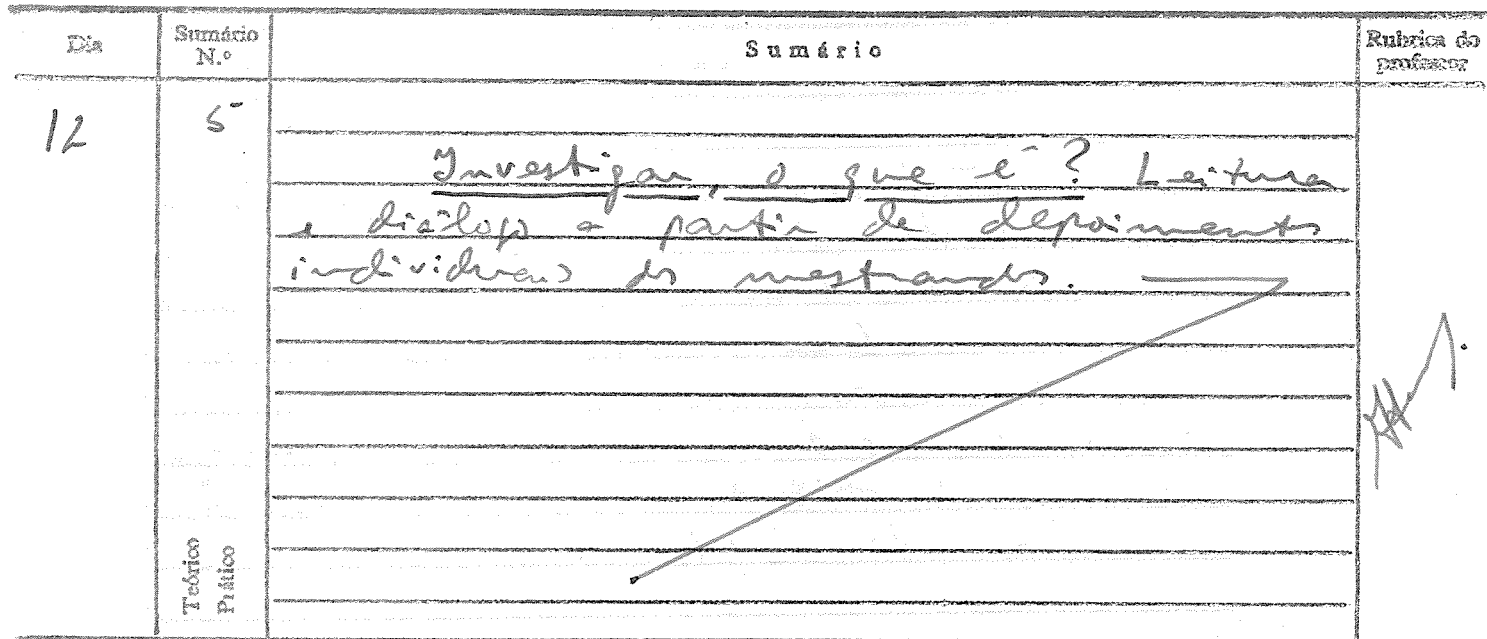 Dia
Sumário N.º
Sumário
Rubrica do professor
12
5
Investigar, o que é? Leitura
e diálogo a partir de depoimentos
individuais dos mestrandos.
Teórico
Prático